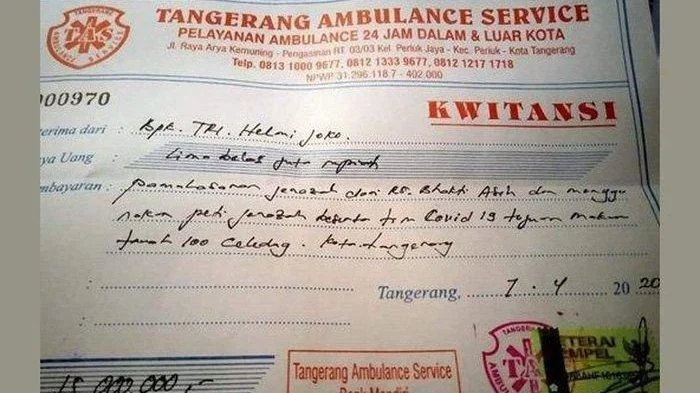 TANGERANG AMBULANCE SERVICE
PELAYANAN AMBULANCE 24 JAM DALAM & LUAR KOTA
Jl. Raya Arya Kemuning - Pengasinan RT 03/03 Kel. Periuk Jaya - Kec. Periuk - Kota Tangerang
Telp. 0813 1000 9677, 0812 1333 9677, 0812 1217 1718
NPWP 31.296.118.7 - 402.000
TAS
000970
KWITANSI
erima dari : Bpk. TRI. Helmi Joko.
ya Uang : Lima belas juta rupiah
mbayaran : pemakasaran jenazah dari RS. Bhakti Asih dan menggu
nakan peti jenazah beserta tim Covid 19 tujuan makam
tanah 100 Ciledug. Kota tangerang
Tangerang, 7 - 4 2020
15.000.000,-
Tangerang Ambulance Service
Bank Mandiri
TANGERANG
TAS
AMBUL
ETERAI
EMPEL